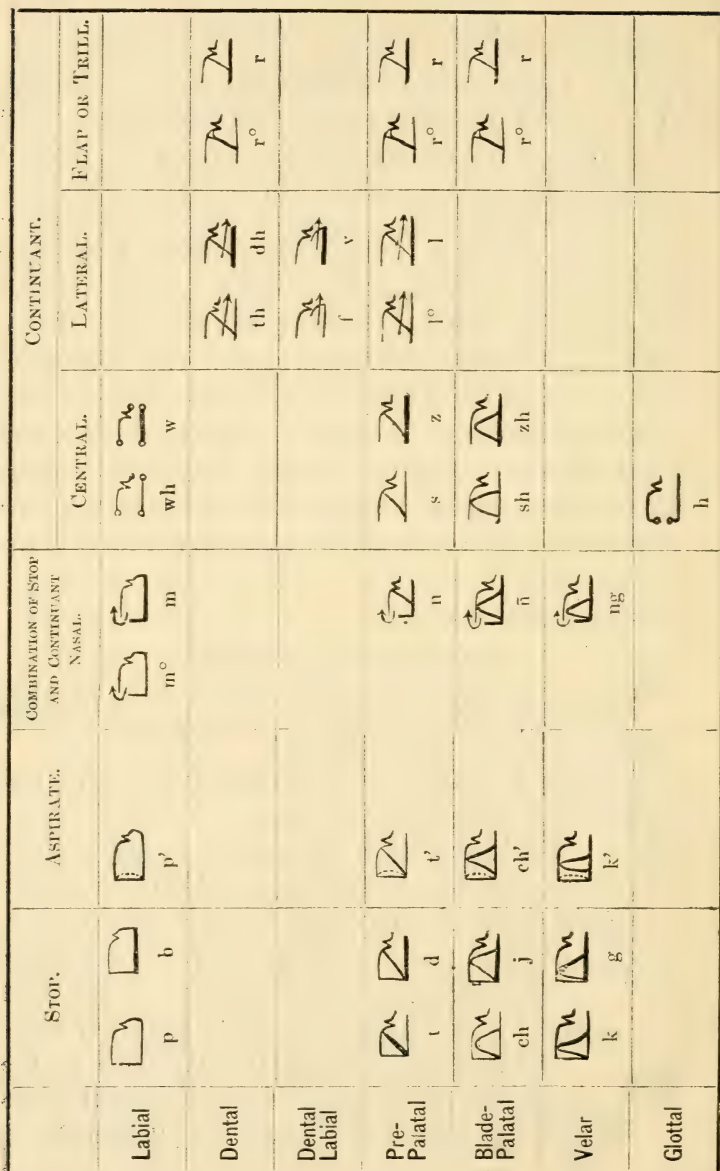 CONTINUANT.
STOP. ASPIRATE. COMBINATION OF STOP AND CONTINUANT NASAL. CENTRAL. LATERAL. FLAP OR TRILL.
Labial p b p' m° m wh w
Dental th dh r° r
Dental Labial f v
Pre-Palatal t d t' n s z l° l r° r
Blade-Palatal ch j ch' ñ sh zh r° r
Velar k g k' ng
Glottal h